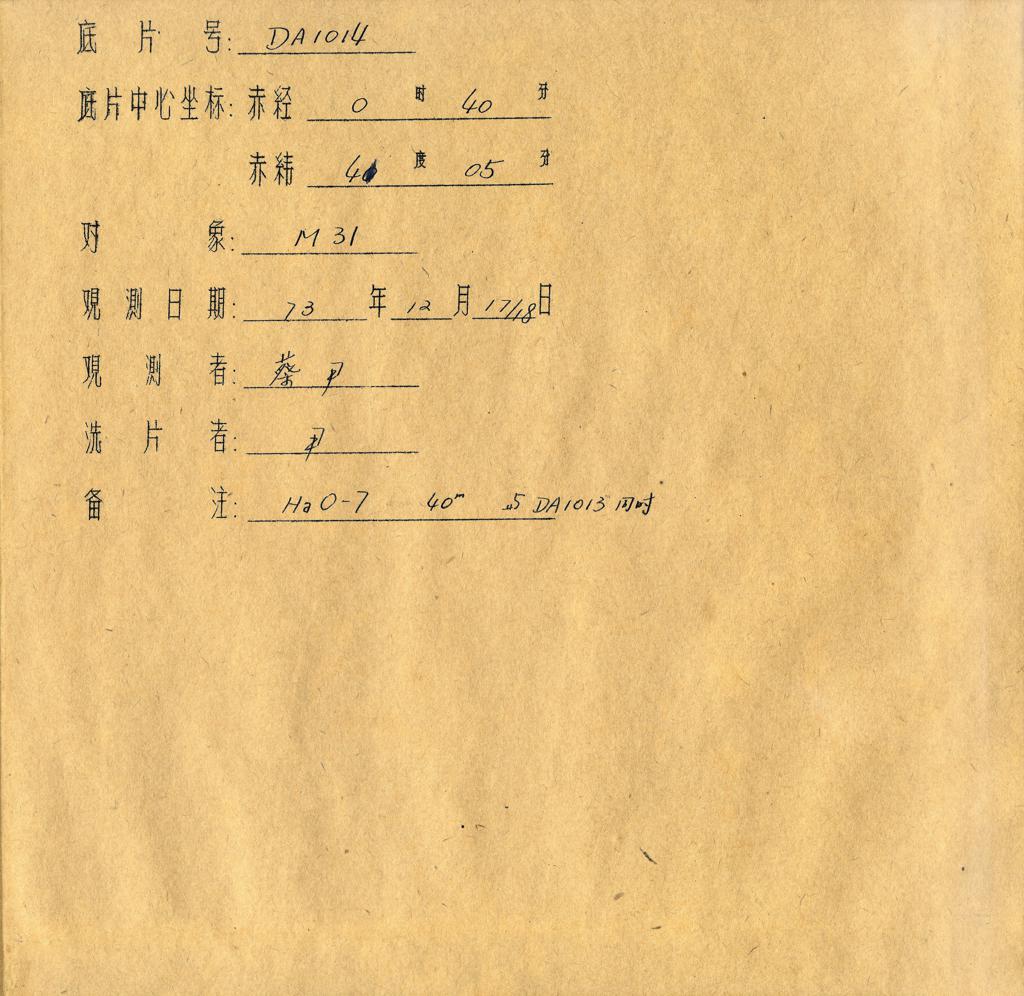 底片号: DA1014
底片中心坐标: 赤经 0 时 40 分
赤纬 40 度 05 分
对象: M 31
观测日期: 73 年 12 月 17/18 日
观测者: 蔡
洗片者:
备注: HaO-7 40ᵐ 与 DA1013 同时